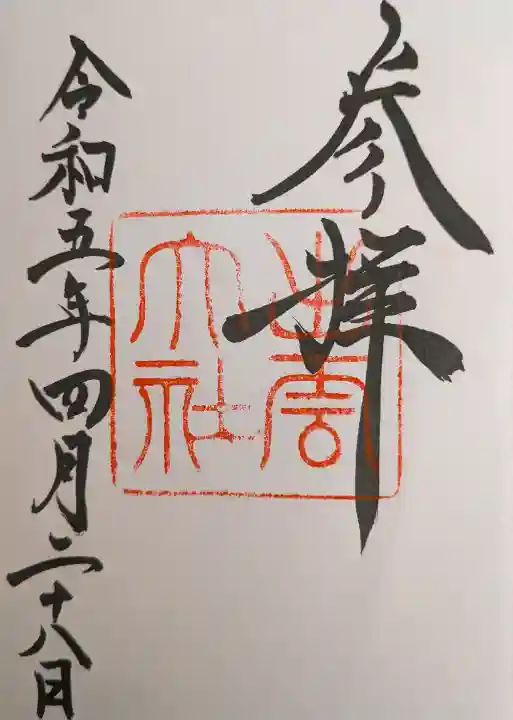 参拝
出雲
大社
令和五年四月二十八日